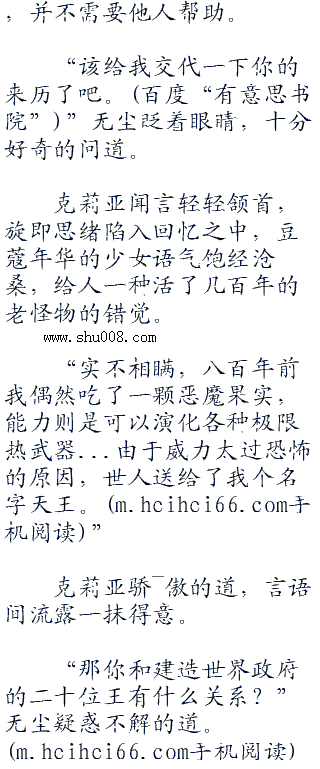 ，并不需要他人帮助。
“该给我交代一下你的
来历了吧。(百度“有意思书
院”)”无尘眨着眼睛，十分
好奇的问道。
克莉亚闻言轻轻颔首，
旋即思绪陷入回忆之中，豆
蔻年华的少女语气饱经沧
桑，给人一种活了几百年的
老怪物的错觉。
www.shu008.com
“实不相瞒，八百年前
我偶然吃了一颗恶魔果实，
能力则是可以演化各种极限
热武器...由于威力太过恐怖
的原因，世人送给了我个名
字天王。(m.hcihci66.com手
机阅读)”
克莉亚骄¯傲的道，言语
间流露一抹得意。
“那你和建造世界政府
的二十位王有什么关系？”
无尘疑惑不解的道。
(m.hcihci66.com手机阅读)